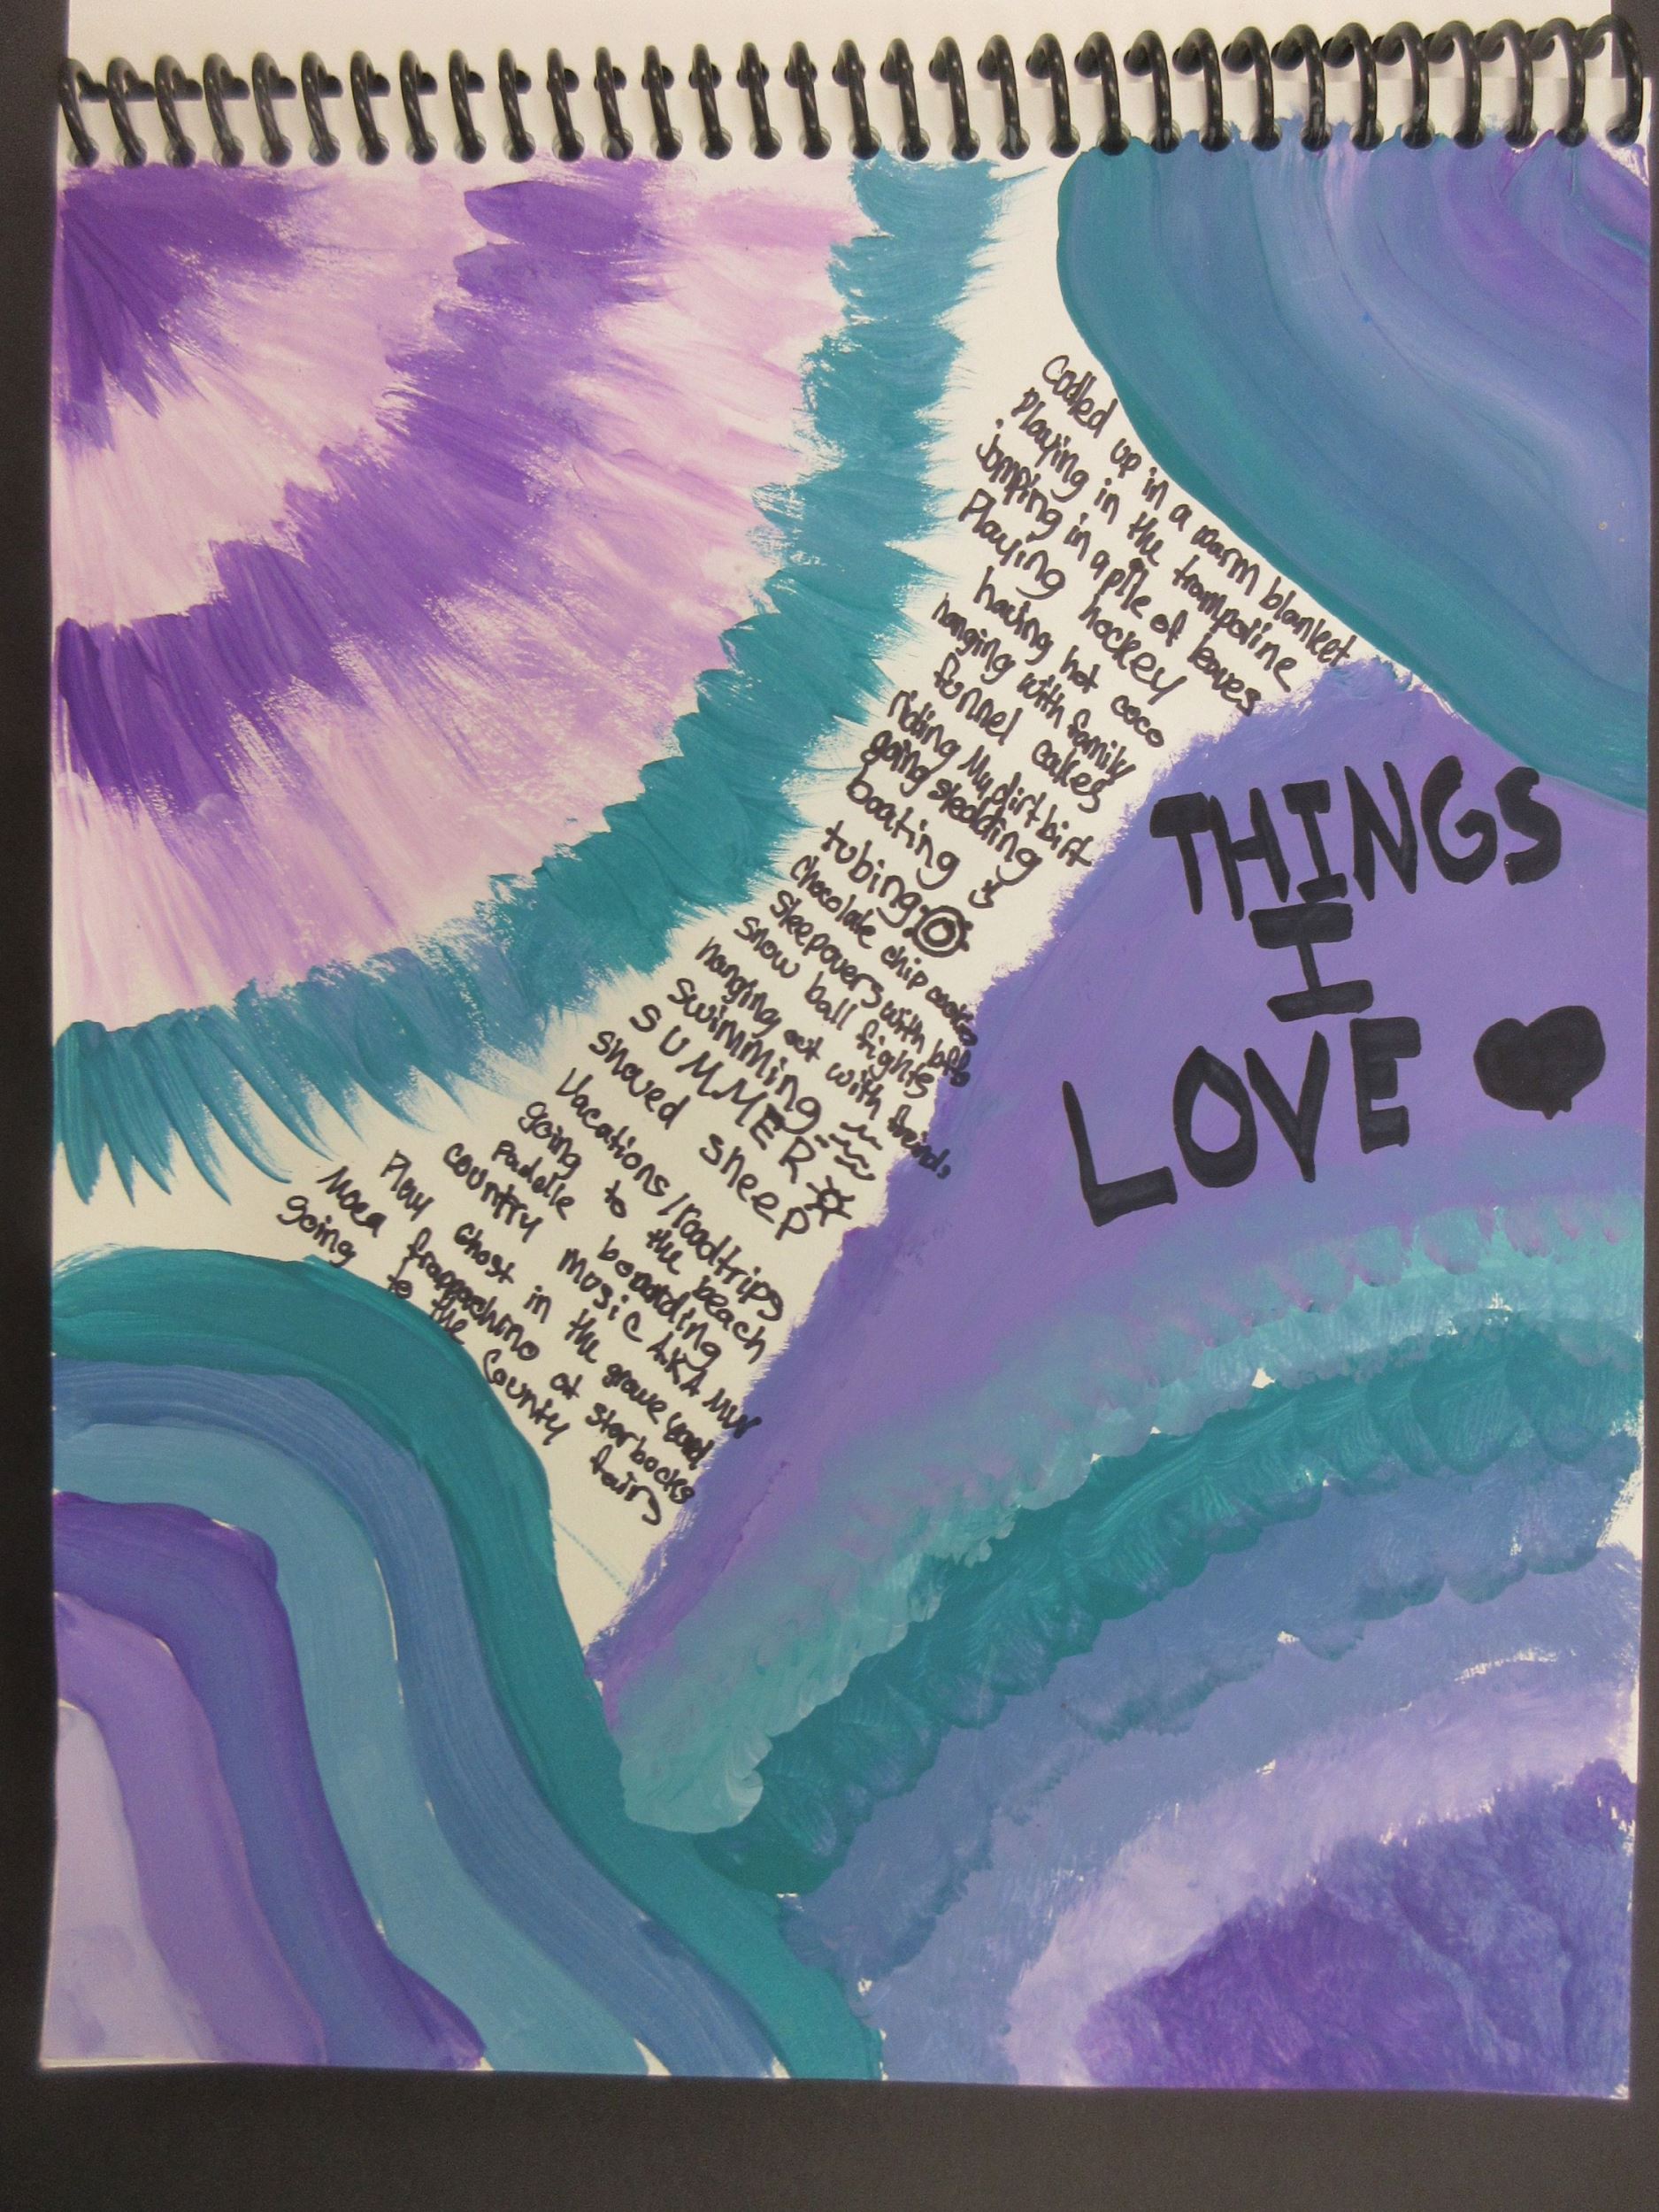 Cudled up in a warm blanket
Playing in the trampoline
jumping in a pile of leaves
Playing hockey
having hot coco
hanging with family
funnel cakes
riding My dirt birt
going sledding
boating
tubing
Chocolate chip cookies
Sleepovers with bffs
Snow ball fights
hanging out with freinds
Swimming
SUMMER
Shaved sheep
Vacations/roadtrips
going to the beach
Paddle boarding
country music AKA
Play Ghost in the grave yard
Moca frappachino at starbucks
going to the County fairs
THINGS
I
LOVE